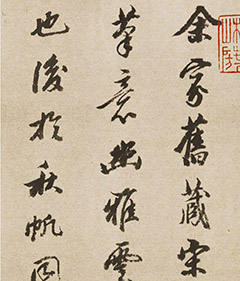 余家舊藏宋
筆意幽雅雲
也後於秋帆